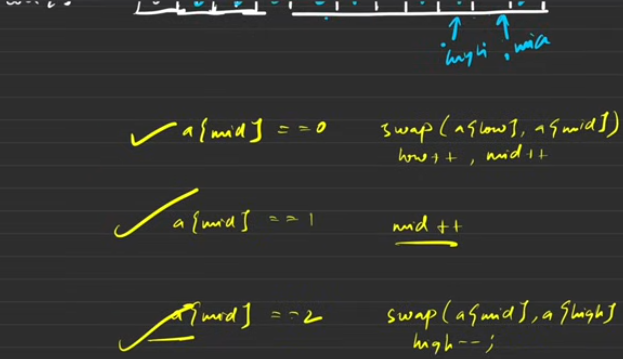 high mid
a[mid] == 0 swap(a[low], a[mid])
low++, mid++
a[mid] == 1 mid++
a[mid] == 2 swap(a[mid], a[high]
high--;